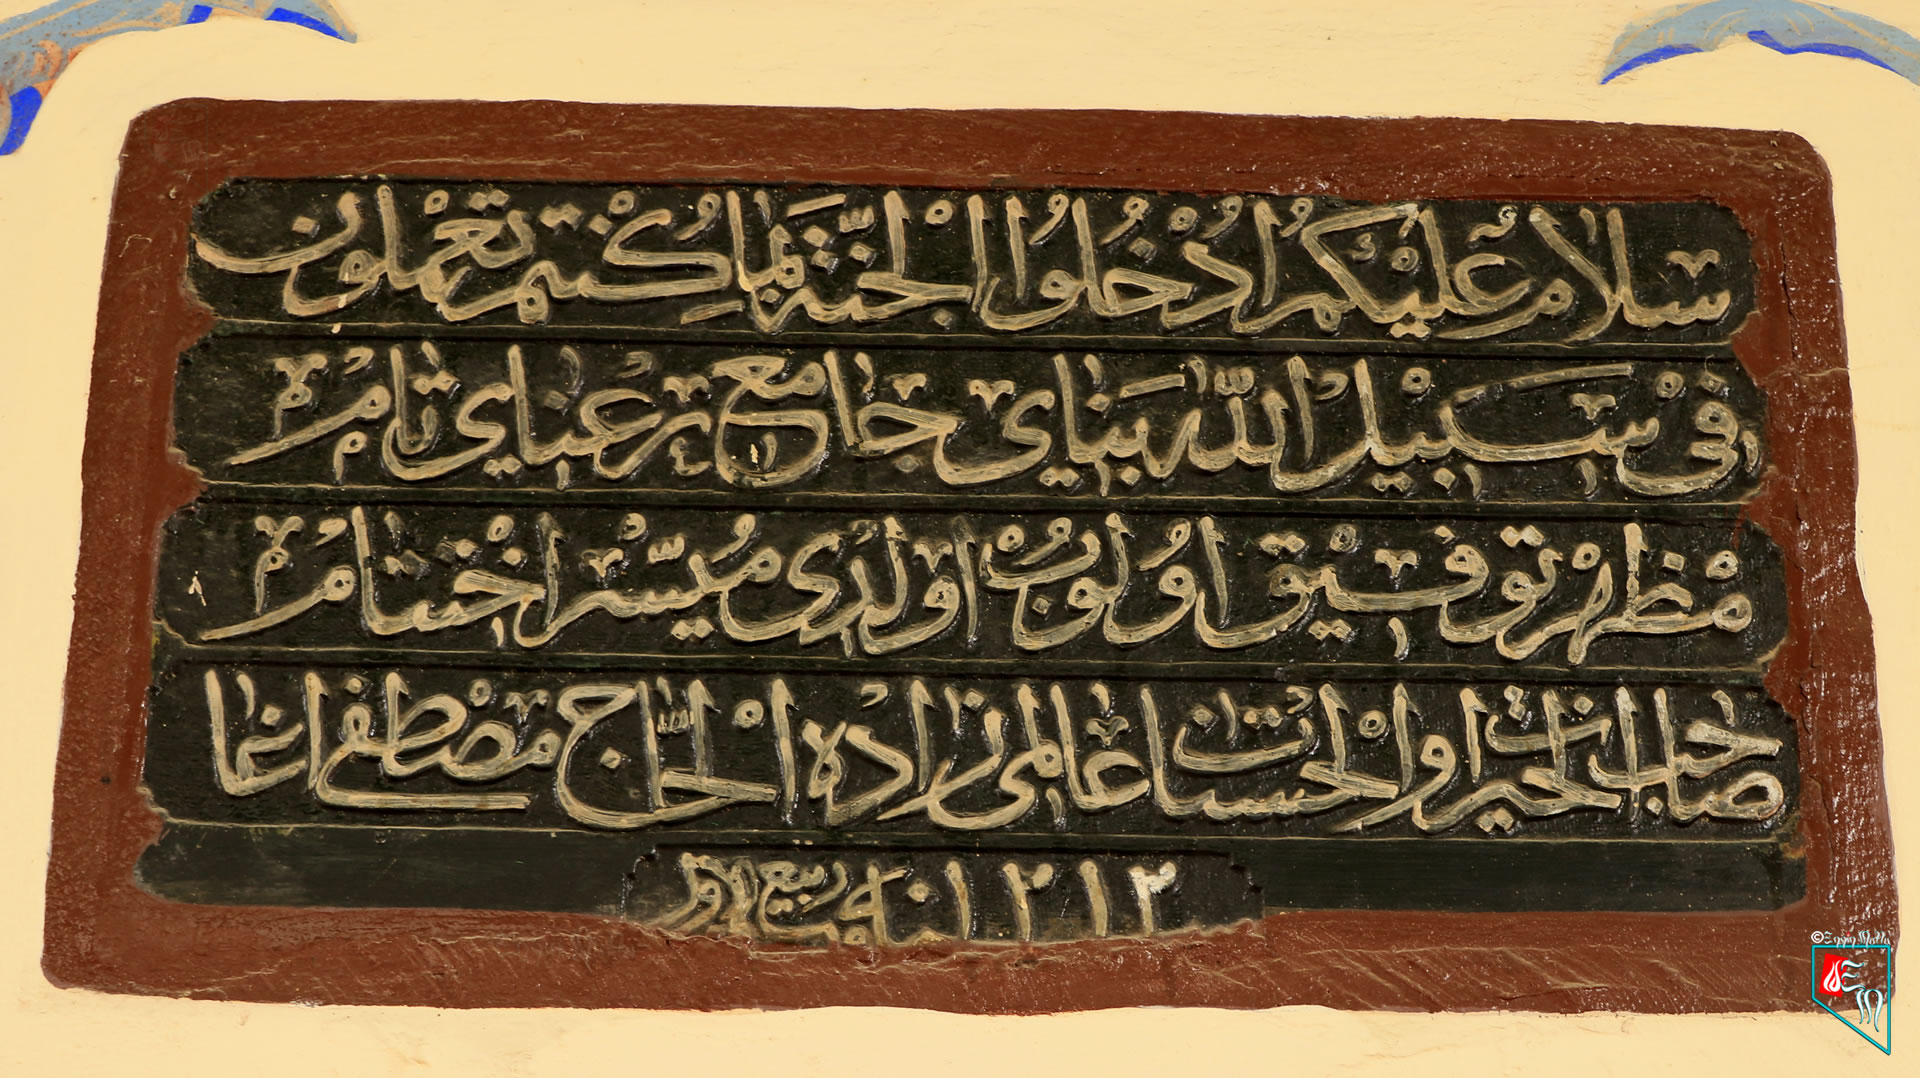 سلام عليكم ادخلوا الجنة بما كنتم تعملون
فى سبيل الله بناى جامع رعناى تام
مظهر توفيق اولوب اولدى ميسر اختتام
صاحب الخيرات والحسنات عالمى زاده الحاج مصطفى اغا
١٢١٢ سنه ربيع الاول
© Engin Mutlu